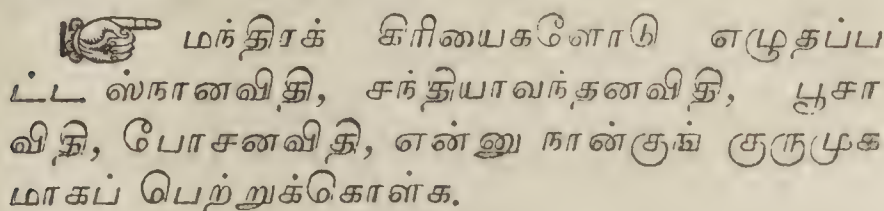 ☞ மந்திரக் கிரியைகளோடு எழுதப்ப
ட்ட ஸ்நானவிதி, சந்தியாவந்தனவிதி, பூசா
விதி, போசனவிதி, என்னு நான்குங் குருமுக
மாகப் பெற்றுக்கொள்க.